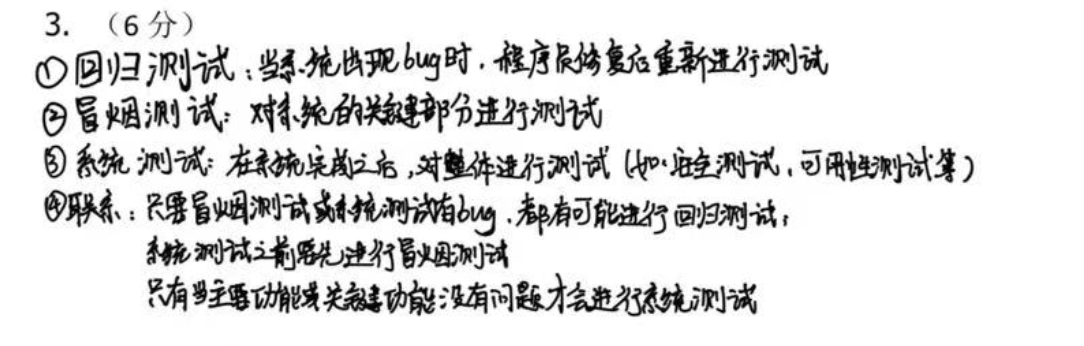 3. （6 分）
①回归测试：当系统出现bug时，程序员修复后重新进行测试
②冒烟测试：对系统的关键部分进行测试
③系统测试：在系统完成之后，对整体进行测试（如：安全测试、可用性测试等）
④联系：只要冒烟测试或系统测试有bug，都有可能进行回归测试；
系统测试之前要先进行冒烟测试
只有当主要功能或关键功能没有问题才会进行系统测试